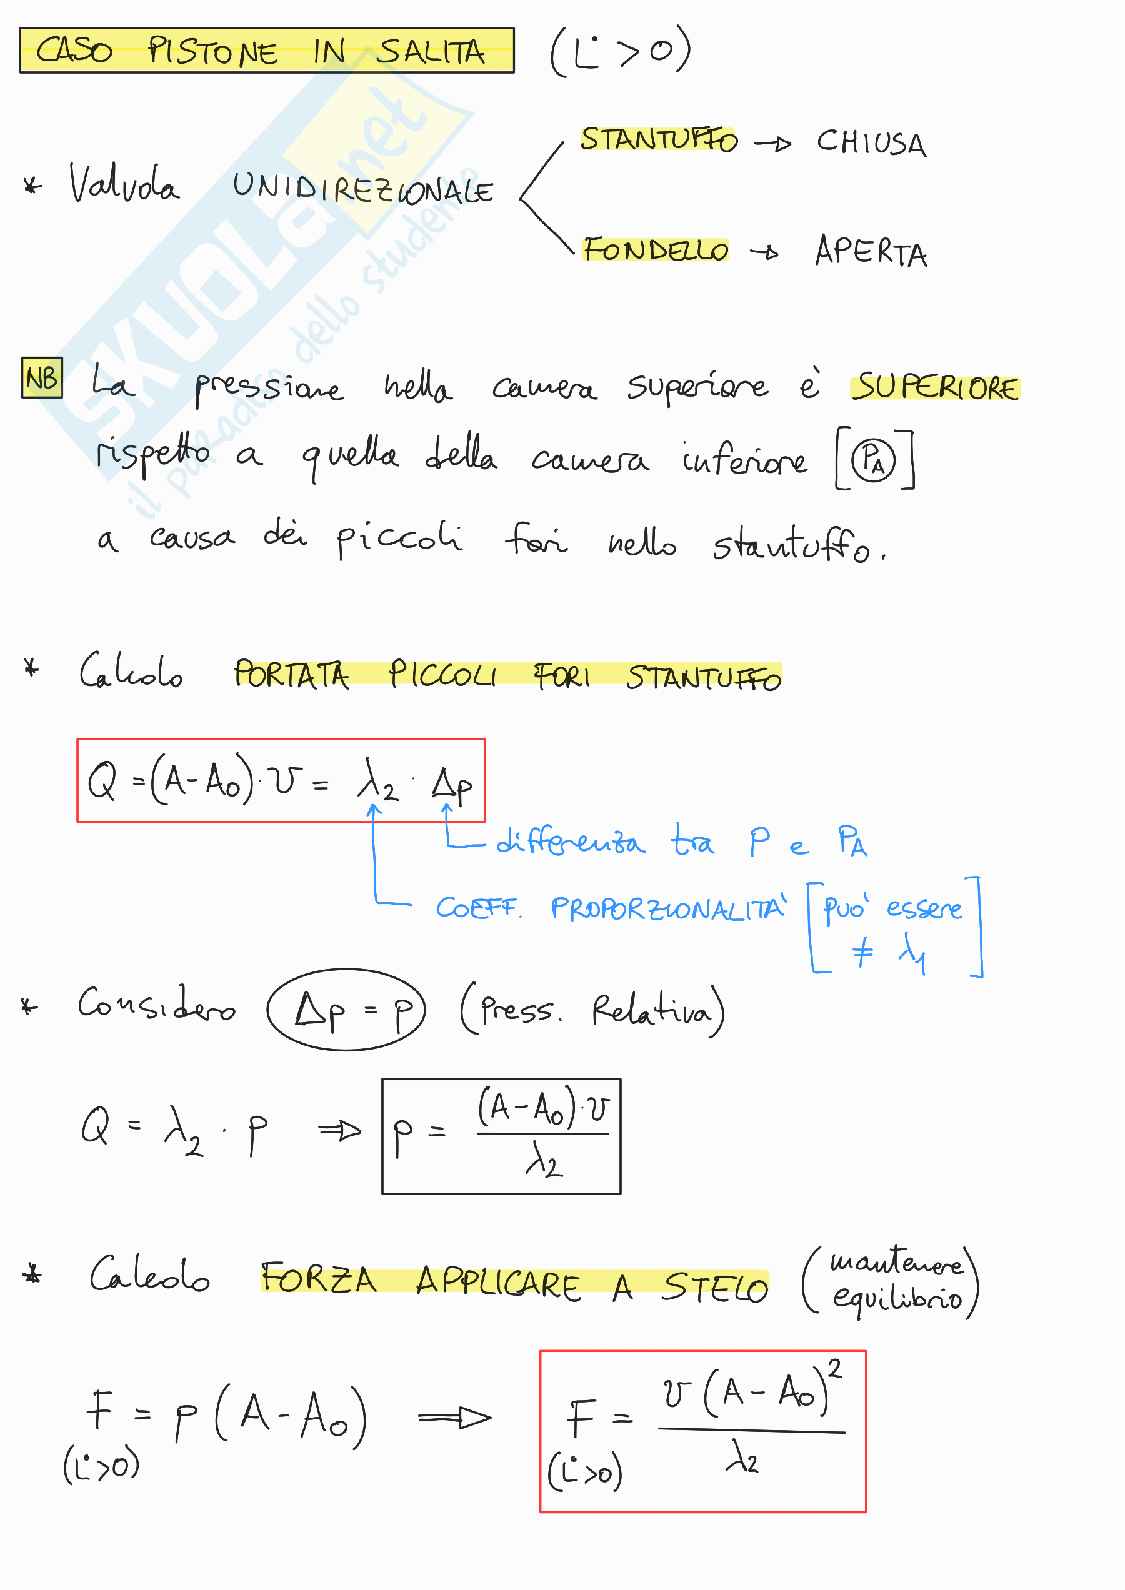 CASO PISTONE IN SALITA (L̇ > 0)
STANTUFFO → CHIUSA
* Valvola UNIDIREZIONALE
FONDELLO → APERTA
NB La pressione nella camera superiore è SUPERIORE
rispetto a quella della camera inferiore [PA]
a causa dei piccoli fori nello stantuffo.
* Calcolo PORTATA PICCOLI FORI STANTUFFO
Q = (A - A₀) · v = λ₂ · Δp
differenza tra P e PA
COEFF. PROPORZIONALITÀ [può essere
≠ λ₁]
* Considero Δp = p (Press. Relativa)
Q = λ₂ · p ⇒ p = (A - A₀) · v / λ₂
* Calcolo FORZA APPLICARE A STELO (mantenere
equilibrio)
F = p (A - A₀) ⇒ F = v (A - A₀)² / λ₂
(L̇ > 0) (L̇ > 0)
SKUOLA.net
il paradiso dello studente